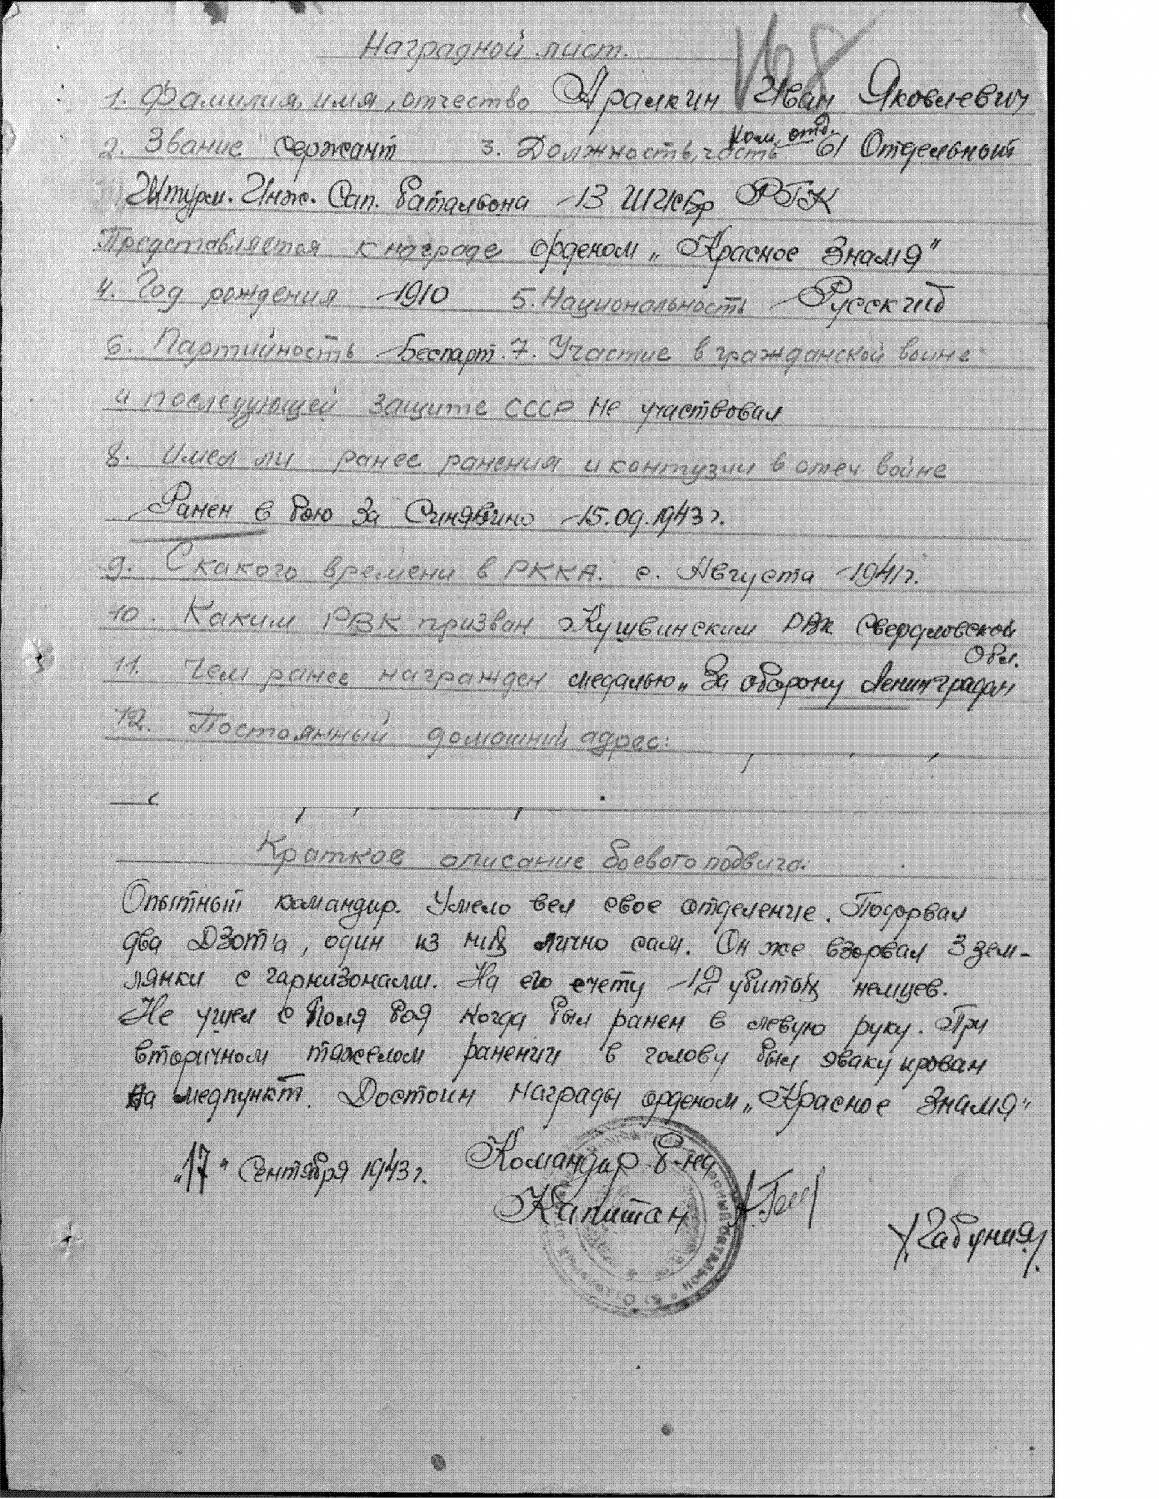 168
Наградной лист.
1. Фамилия, имя, отчество Аралкин Иван Яковлевич
Ком. отд.
2. Звание сержант 3. Должность, часть 61 Отдельный
Штурм. Инж. Сап. батальона 13 ШИСБр РГК
Представляется к награде орденом „Красное Знамя"
4. Год рождения 1910 5. Национальность Русский
6. Партийность Беспарт. 7. Участие в гражданской войне
и последующей защите СССР не участвовал
8. Имел ли ранее ранения и контузии в отеч войне
Ранен в бою за Синявино 15.09.1943г.
9. С какого времени в РККА. с. Августа 1941г.
10. Каким РВК призван Кушвинским РВК Свердловской
Обл.
11. Чем ранее награжден медалью „За оборону Ленинграда"
12. Постоянный домашний адрес:
Краткое описание боевого подвига.
Опытный командир. Умело вел свое отделение. Подорвал
два ДЗОТ'а, один из них лично сам. Он же взорвал 3 зем-
лянки с гарнизонами. На его счету 12 убитых немцев.
Не ушел с поля боя когда был ранен в левую руку. При
вторичном тяжелом ранении в голову был эвакуирован
на медпункт. Достоин награды орденом „Красное Знамя"
„17" Сентября 1943г. Командир б-на
Капитан
/Габуния/.